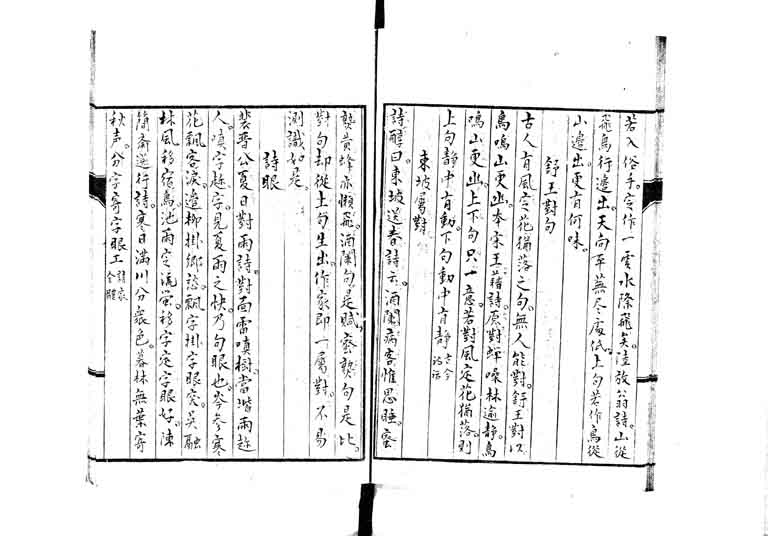 若入俗手。定作一雙水際飛矣。陸放翁詩。山從
飛鳥行邊出。天向平蕪盡處低。上句若作鳥從
山邊出。更有何味。
舒王對句
古人有風定花猶落之句。無人能對。舒王對以
鳥鳴山更幽。本宋王藉詩。原對蟬噪林逾靜。鳥
鳴山更幽。上下句只一意。若對風定花猶落。則
上句靜中有動。下句動中有靜 古今詩話
東坡屬對
詩醇曰。東坡送春詩云。酒闌病客惟思睡。蜜
熟黃蜂亦懶飛。酒闌句是賦。蜜熟句是比。
對句却從上句生出。作家即一屬對。不易
測識如是。
詩眼
裴晉公夏日對雨詩。對面雷嗔樹。當階雨趁
人。嗔字趁字。見夏雨之快。乃句眼也。岑參寒
花飄客淚。邊柳掛鄉愁。飄字掛字眼突。吳融
林風移宿鳥。池雨定流螢。移字定字眼好。陳
簡齋遊行詩。寒日滿川分衆色。暮林無葉寄
秋声。分字寄字眼工